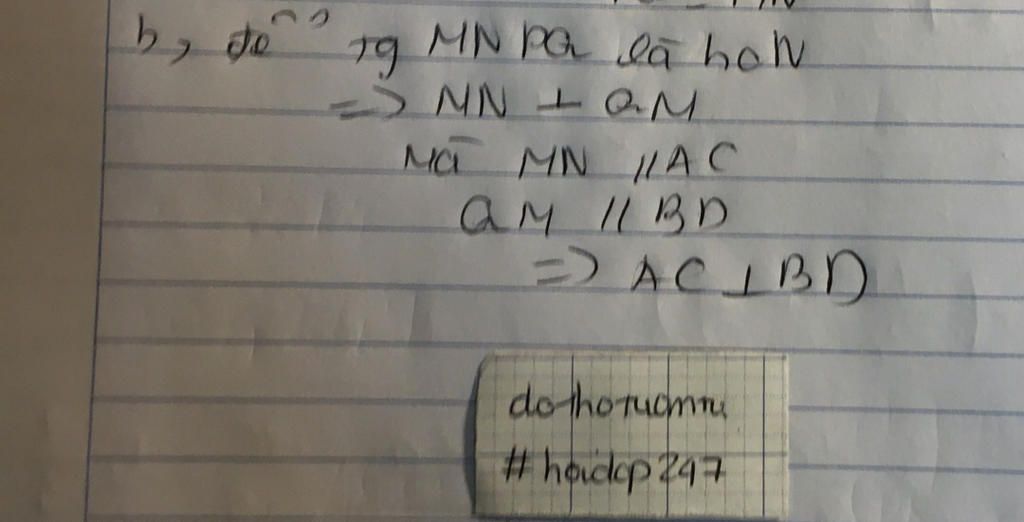 b, để tg MNPQ là hcN
=> MN ⊥ QM
Mà MN // AC
QM // BD
=> AC ⊥ BD
#hoidap247